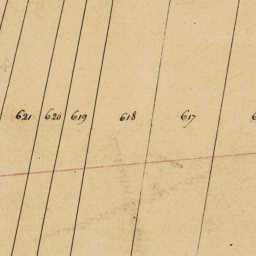 621 620 619 618 617